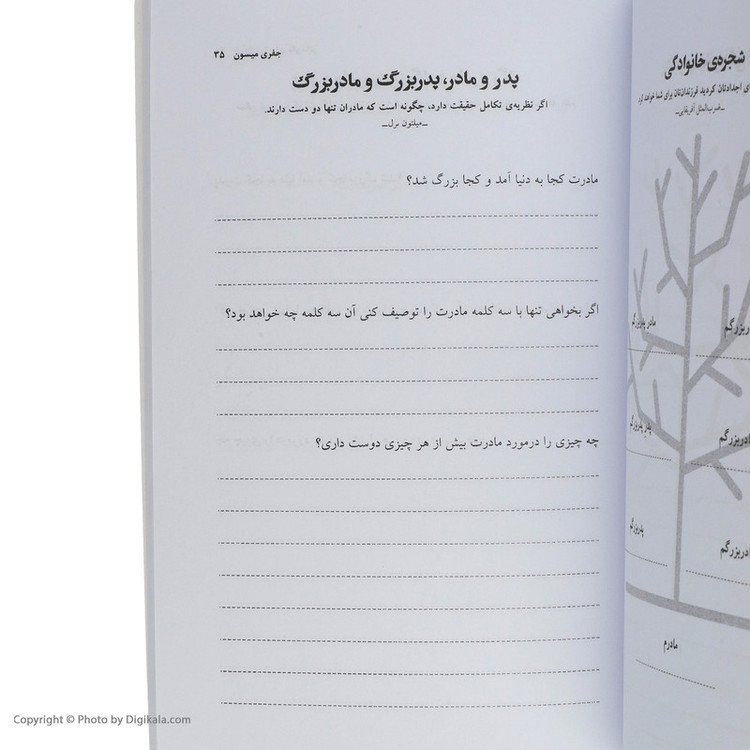 شجره‌ی خانوادگی
ـضرب‌المثل آفریقایی‌ـ
مادر پدربزرگم
پدر پدربزرگم
پدربزرگم
مادرم
جفری میسون ۳۵
پدر و مادر، پدربزرگ و مادربزرگ
اگر نظریه‌ی تکامل حقیقت دارد، چگونه است که مادران تنها دو دست دارند.
ـمیلتون برل‌ـ
مادرت کجا به دنیا آمد و کجا بزرگ شد؟
اگر بخواهی تنها با سه کلمه مادرت را توصیف کنی آن سه کلمه چه خواهد بود؟
چه چیزی را درمورد مادرت بیش از هر چیزی دوست داری؟
Copyright © Photo by Digikala.com